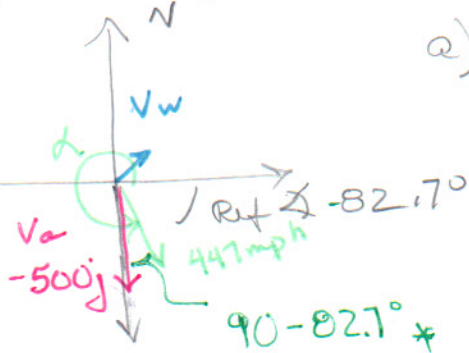 N
a)
Vw
α
Ref ∡ -82.7°
Va
-500j
447mph
90-82.7° *